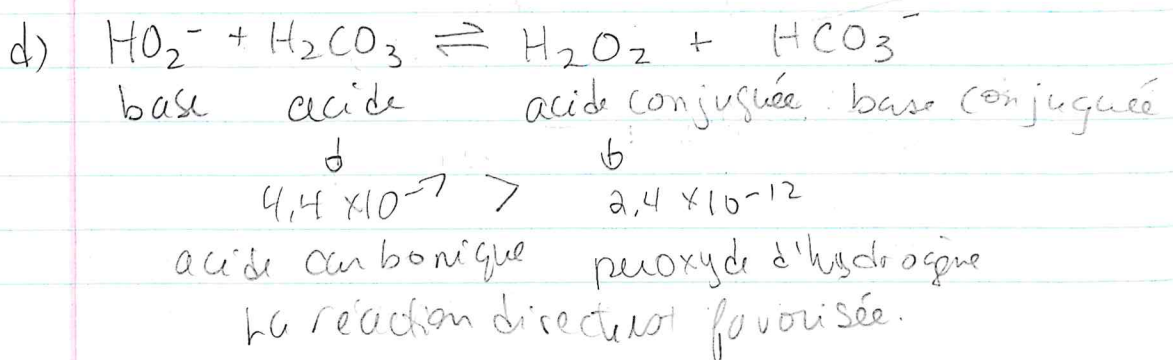 d) HO₂⁻ + H₂CO₃ ⇌ H₂O₂ + HCO₃⁻
base acide acide conjuguée base conjuguée
↓ ↓
4,4 ×10⁻⁷ > 2,4 ×10⁻¹²
acide carbonique peroxyde d'hydrogène
La réaction direct est favorisée.